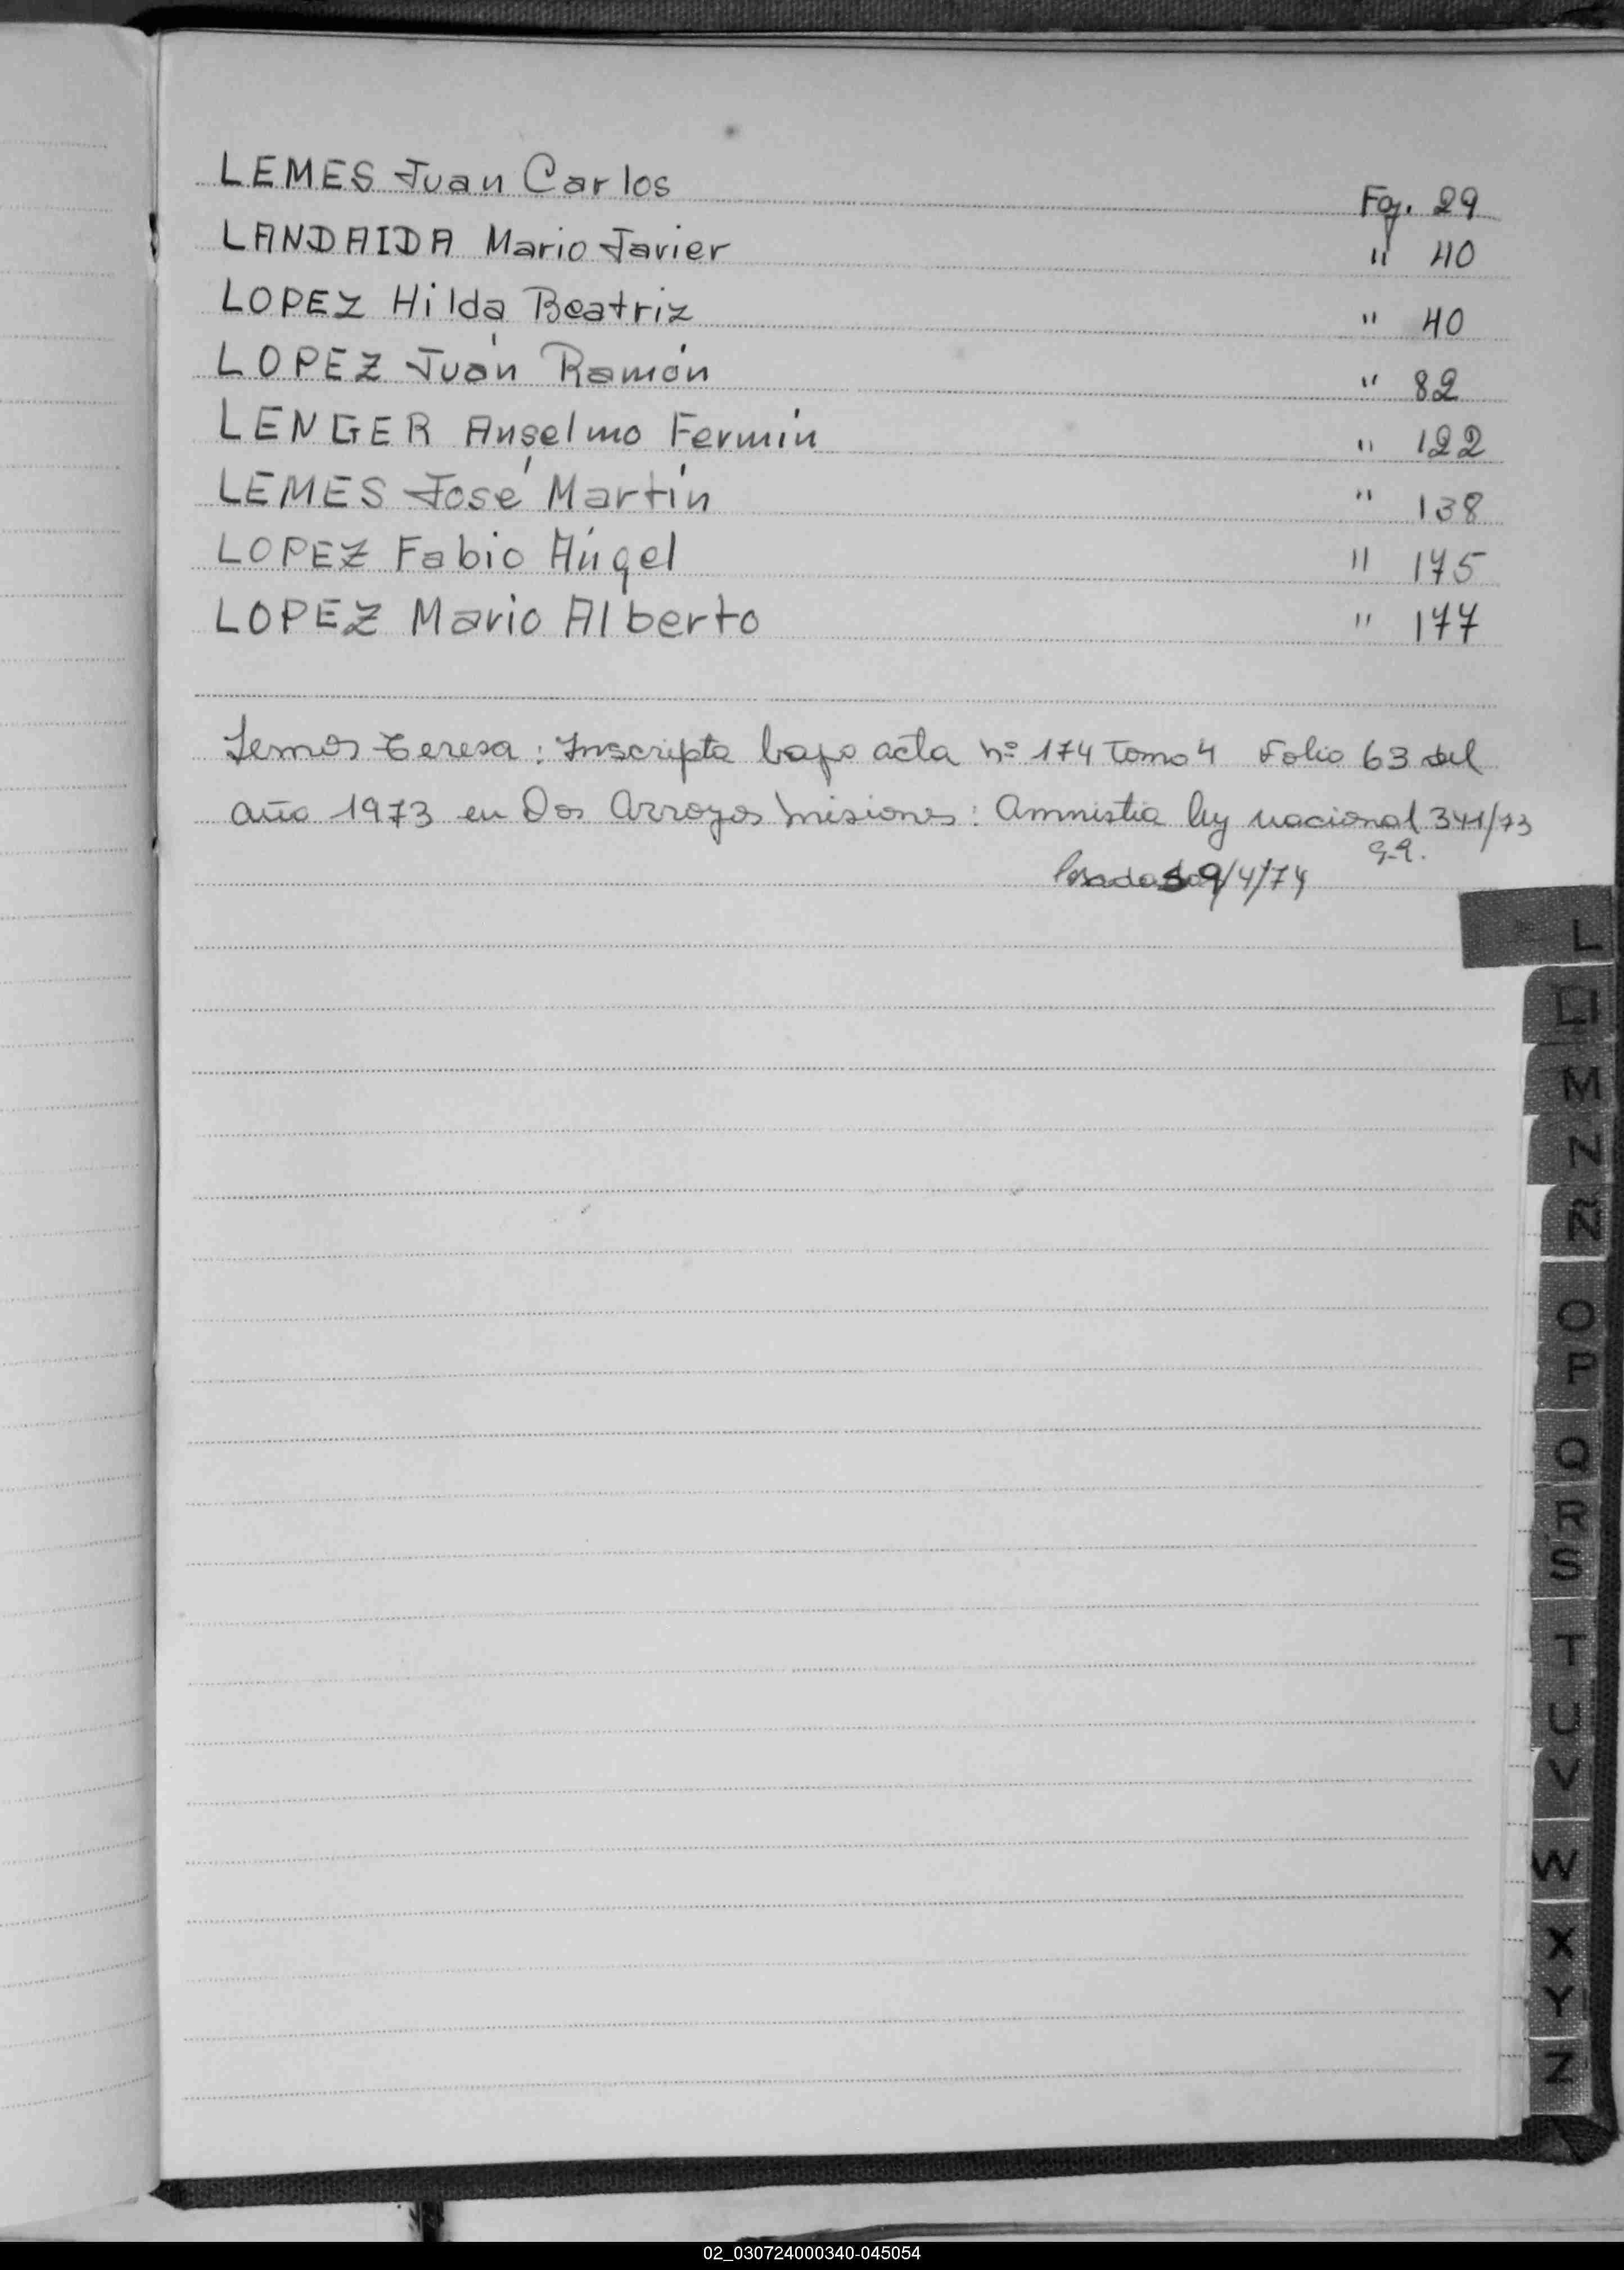 LEMES Juan Carlos Foj. 29
LANDAIDA Mario Javier " 40
LOPEZ Hilda Beatriz " 40
LOPEZ Juán Ramón " 82
LENGER Anselmo Fermín " 122
LEMES José Martín " 138
LOPEZ Fabio Angel " 175
LOPEZ Mario Alberto " 177
Lemos Teresa: Inscripta bajo acta nº 174 Tomo 4 Folio 63 del
año 1973 en Dos Arroyos Misiones: Amnistia ley nacional 341/73
Posadas 9/4/74
L
Ll
M
N
Ñ
O
P
Q
R
S
T
U
V
W
X
Y
Z
02_030724000340-045054